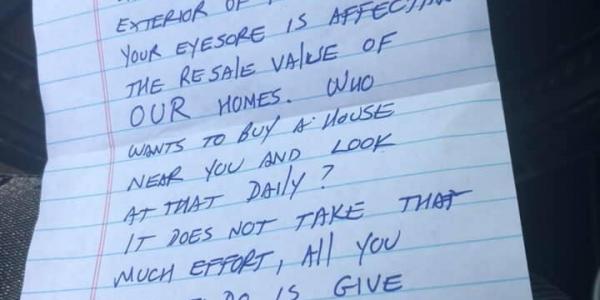 EXTERIOR OF
YOUR EYESORE IS AFFECTIN
THE RESALE VALUE OF
OUR HOMES. WHO
WANTS TO BUY A HOUSE
NEAR YOU AND LOOK
AT THAT DAILY?
IT DOES NOT TAKE THAT
MUCH EFFORT, All YOU
DO IS GIVE